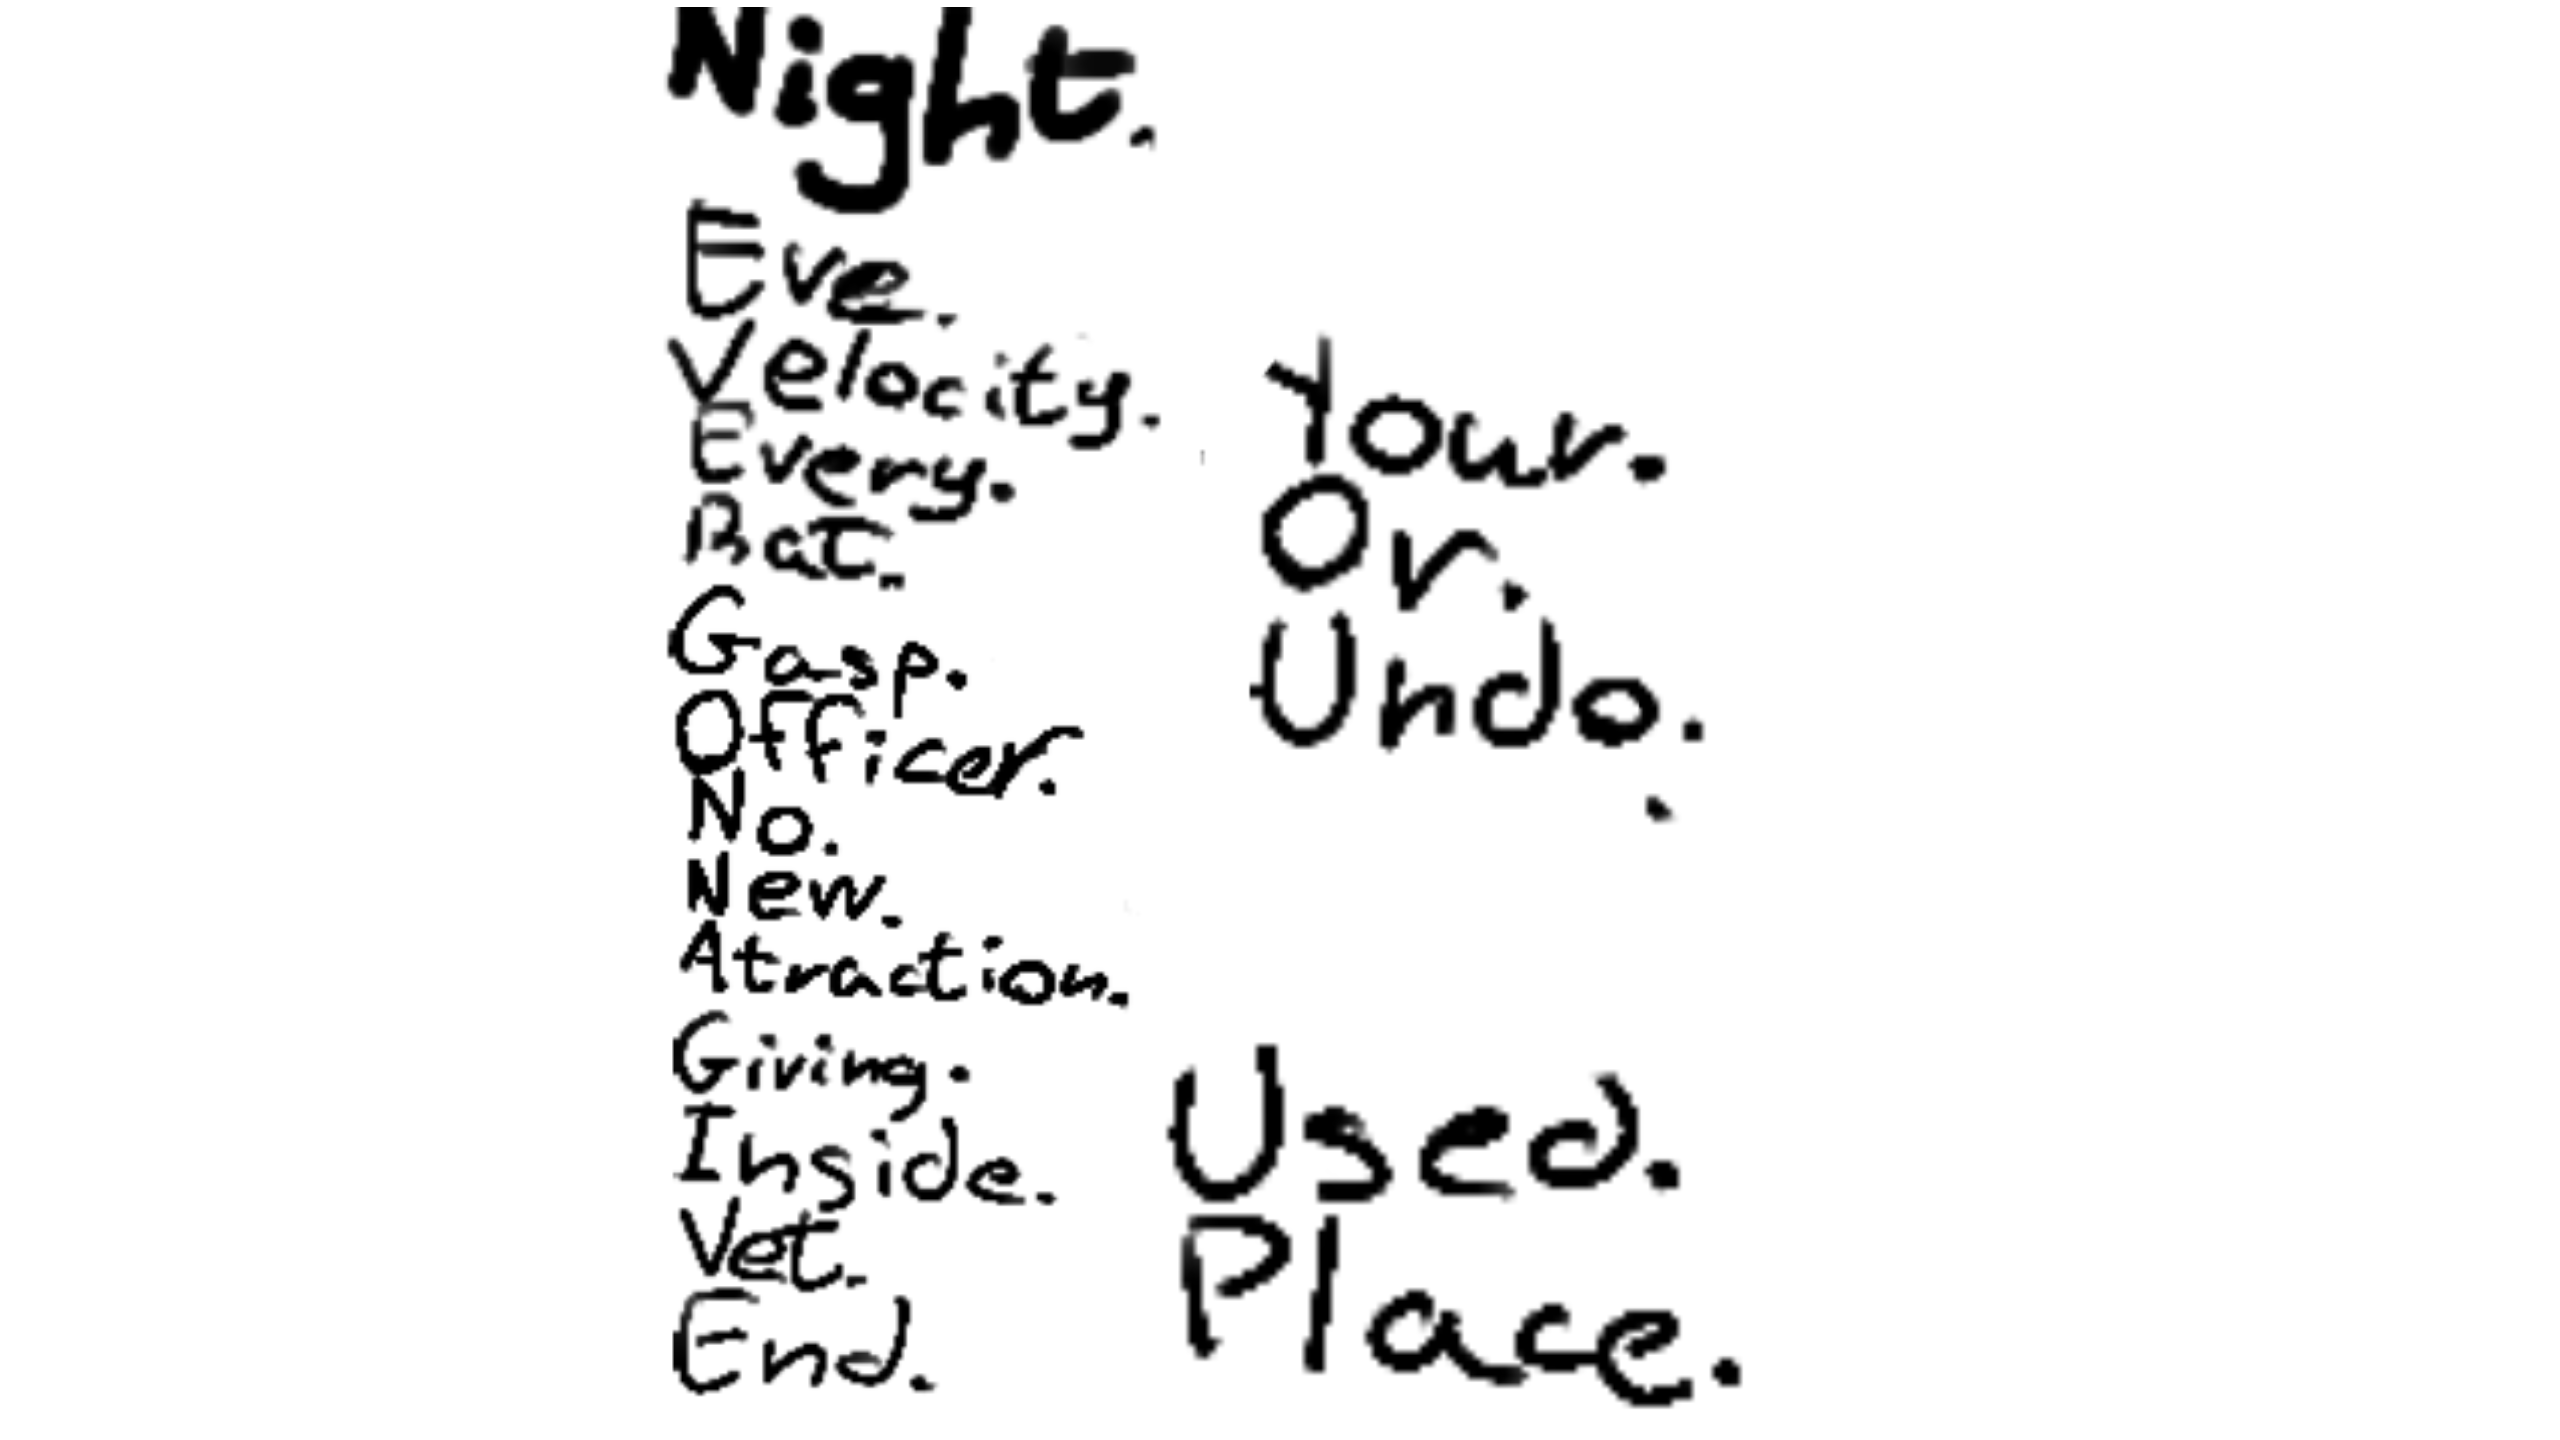 Night.
Eve.
Velocity.
Every.
Rat.
Gasp.
Officer.
No.
New.
Atraction.
Giving.
Inside.
Vet.
End.
Your.
Or.
Undo.
Used.
Place.